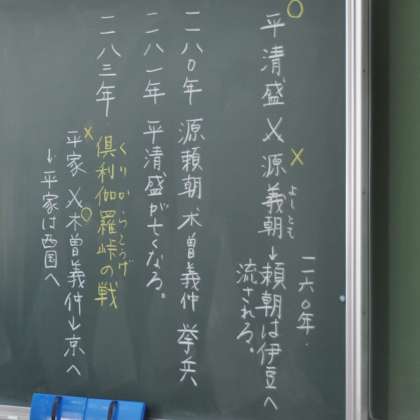 一一六〇年.
○平清盛 × ×源義朝↓頼朝は伊豆へ
よしとも
流される。
一一八〇年 源頼朝 木曽義仲 挙兵
一一八一年 平清盛が亡くなる。
一一八三年 倶利伽羅峠の戦
くりからとうげ
×平家 × ○木曽義仲↓京へ
↓平家は西国へ